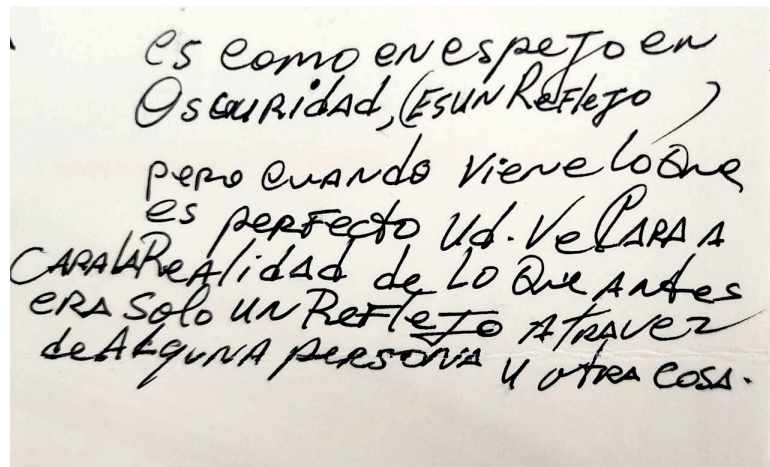 es como en espejo en
Oscuridad, (ES UN ReFlejo)
pero cuando viene lo Que
es perfecto Ud. Ve CARA A
CARA LA ReAlidad de Lo Que Antes
eRA Solo UN ReFlejo ATRAVEZ
de AlgunA persona u otra cosa.